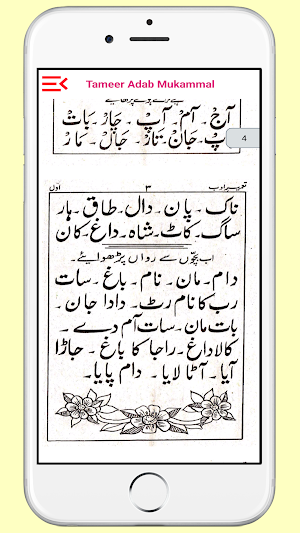 Tameer Adab Mukammal
آج۔ آم۔ آپ۔ چار۔ بات
پ۔ جان۔ تار۔ جال۔ مار
4
تعمیر ادب ۳ اول
ناک۔ پان۔ دال۔ طاق۔ ہار
ساگ۔ کاٹ۔ شاہ۔ داغ۔ کان
اب بچّوں سے رواں پڑھوایئے۔
دام۔ مان۔ نام۔ باغ۔ سات
رب کا نام رٹ۔ دادا جان۔
بات مان۔ سات آم دے۔
کالا داغ۔ راجا کا باغ۔ جاڑا
آیا۔ آٹا لایا۔ دام پایا۔